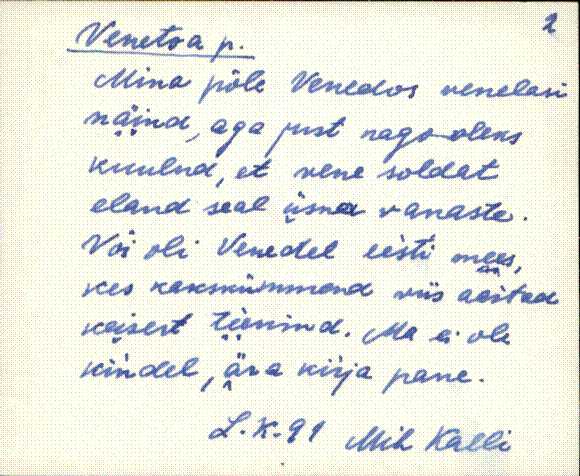 2
Venetsa p.
Mina põle Venedos venelasi
näind, aga just nago oleks
kuulnd, et vene soldat
eland seal üsna vanaste.
Või oli Venedel eesti mees,
kes kakskümmend viis aastad
keisert tieenind. Ma ei ole
kindel, ära kirja pane.
L.K. 91 Mih Kalli